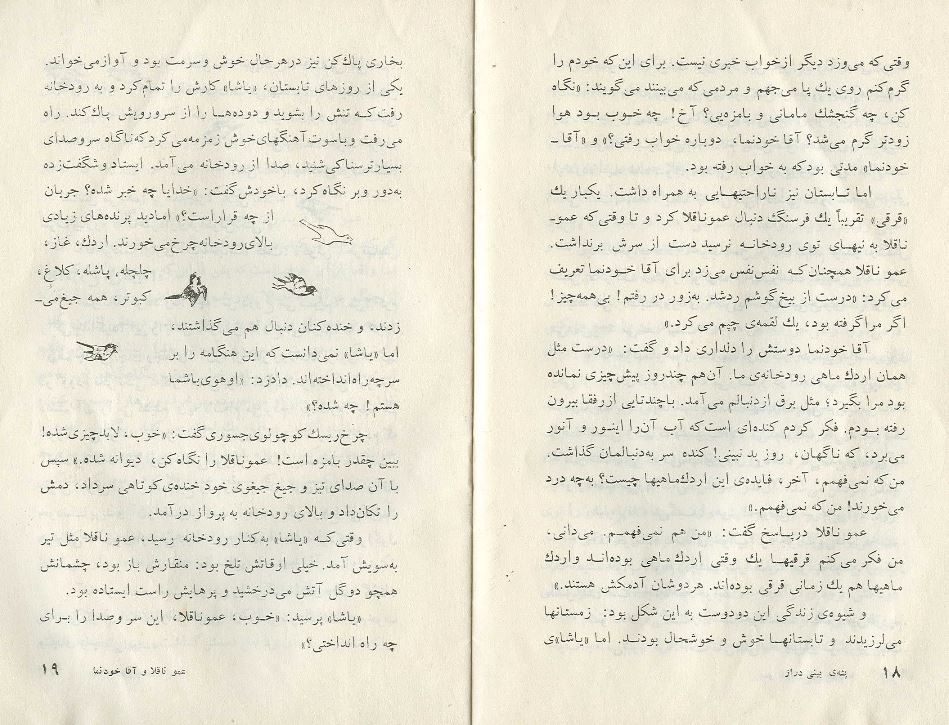 وقتی‌که می‌وزد دیگر ازخواب خبری نیست. برای این‌که خودم را
گرم‌کنم روی یك پا می‌جهم و مردمی‌که می‌بینند می‌گویند: «نگاه
کن، چه گنجشك مامانی و بامزه‌یی؟ آخ! چه خــوب بــود هوا
زودتر گرم می‌شد؟ آقا خودنما، دوباره خواب رفتی؟» و «آقا ـ
خودنما» مدتی بودکه به خواب رفته بود.
اما تــابستان نیز ناراحتیهــایی به همراه داشت. یکبار یك
«قرقی» تقریباً یك فرسنگ دنبال عموناقلا کرد و تا وقتی که عموـ
ناقلا به نیهـای توی رودخانــه نرسید دست از سرش برنداشت.
عمو ناقلا همچنان‌کـه نفس‌نفس می‌زد برای آقا خــودنما تعریف
می‌کرد: «درست از بیخ‌گوشم ردشد. به‌زور در رفتم! بی‌همه‌چیز!
اگر مراگرفته بود، یك لقمه‌ی چپم می‌کرد.»
آقا خودنما دوستش را دلداری داد و گفت: «درست مثل
همان اردك ماهی رودخانه‌ی ما. آن‌هم چندروز پیش‌چیزی نمانده
بود مرا بگیرد؛ مثل برق ازدنبالم می‌آمد. باچندتایی ازرفقا بیرون
رفته بــودم. فکر کردم کنده‌ای است‌که آب آن‌را اینــور و آنور
می‌برد، که ناگهان، روز بد نبینی! کنده سر به‌دنبالمان گذاشت.
من‌که نمی‌فهمم، آخر، فایده‌ی این اردك‌ماهیها چیست؟ به‌چه درد
می‌خورند! من‌که نمی‌فهمم.»
عمو ناقلا درپـاسخ گفت: «من هم نمی‌فهمــم. می‌دانی.
من فکر می‌کنم قرقیهــا یك وقتی اردك‌ماهی بوده‌انــد و اردك
ماهیها هم یك زمانی قرقی بوده‌اند. هردوشان آدمکش هستند.»
و شیوه‌ی زندگی این دودوست به این شکل بود: زمستانها
می‌لرزیدند و تابستانهـا خوش و خوشحال بودنــد. اما «یاشا»ی
۱۸
پته‌ی بینی دراز
بخاری پاك‌کن نیز درهرحال خوش وسرمت بود و آوازمی‌خواند.
یکی از روزهای تابستان، «یاشا» کارش را تمام‌کرد و به رودخانه
رفت‌کــه تنش را بشوید و دوده‌هــا را از سرورویش پاك‌کند. راه
می‌رفت و باسوت آهنگهای‌خوش زمزمه‌می‌کرد که‌ناگاه سروصدای
بسیارترسناکی‌شنید، صدا از رودخانه می‌آمد. ایستاد وشگفت‌زده
به‌دور وبر نگاه‌کرد، باخودش‌گفت: «خدایا چه خبر شده؟ جریان
از چه قراراست؟» امادید پرنده‌های زیادی
بالای‌رودخانه‌چرخ‌می‌خورند. اردك، غاز،
چلچله، پاشله، کلاغ،
کبوتر، همه جیغ‌می‌ـ
زدند، و خنده‌کنان دنبال هم می‌گذاشتند،
اما «یاشا» نمی‌دانست‌که این هنگامه را بر
سرچه‌راه‌انداخته‌اند. دادزد: «اوهوی‌باشما
هستم! چه شده؟»
چرخ‌ریسك‌کوچولوی‌جسوری‌گفت: «خوب، لابدچیزی‌شده!
ببین چقدر بامزه است! عموناقلا را نگاه‌کن، دیوانه شده.» سپس
با آن صدای تیز و جیغ جیغوی خود خنده‌ی‌کوتاهی سرداد، دمش
را تکان‌داد و بالای رودخانه به پرواز درآمد.
وقتی‌کــه «یاشا» به‌کنار رودخانه رسید، عمو ناقلا مثل تیر
به‌سویش آمد. خیلی اوقاتش تلخ بود: منقارش باز بود، چشمانش
همچو دوگل آتش می‌درخشید و پرهایش راست ایستاده بود.
«یاشا» پرسید: «خــوب، عموناقلا، این سر وصدا را بــرای
چه راه انداختی؟»
عمو ناقلا و آقا خودنما
۱۹